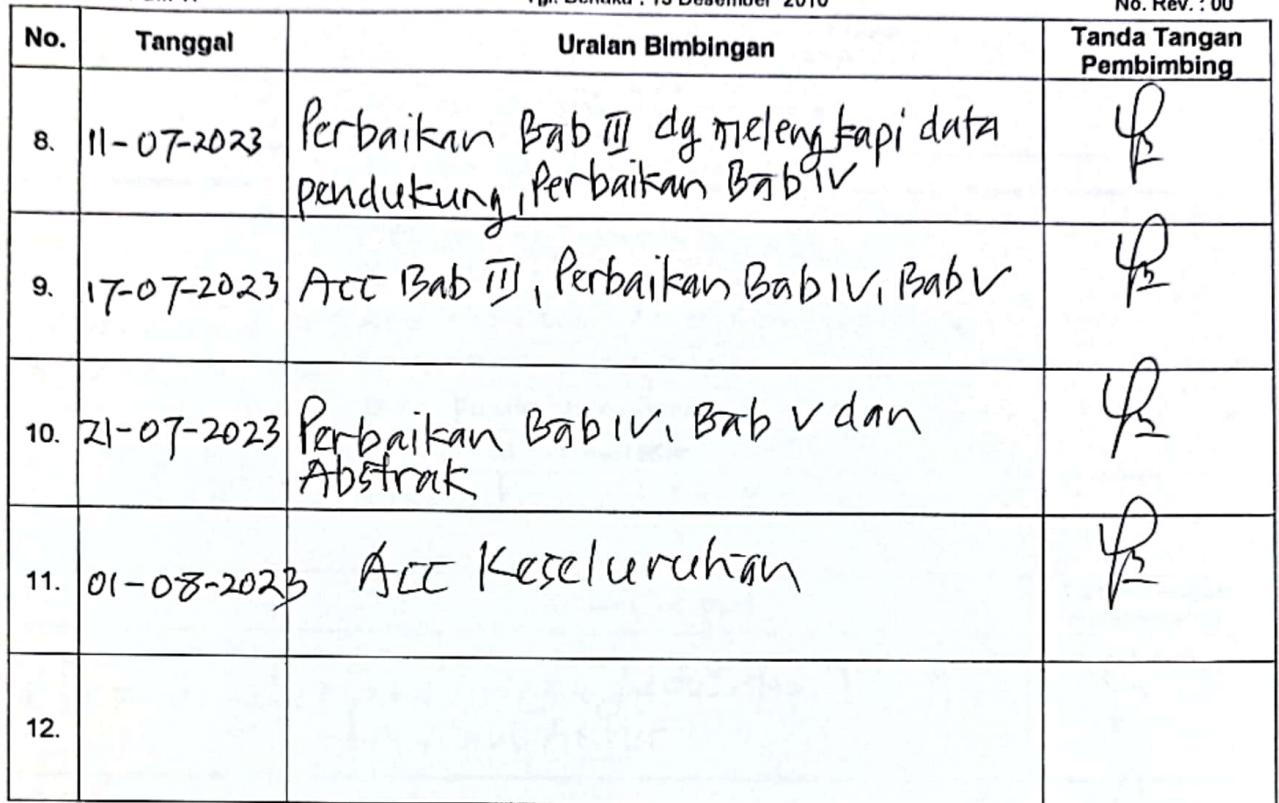 No. Rev. : 00
No. Tanggal Uraian Bimbingan Tanda Tangan Pembimbing
8. 11-07-2023 Perbaikan Bab III dg melengkapi data
pendukung, Perbaikan Bab IV
9. 17-07-2023 Acc Bab III, Perbaikan Bab IV, Bab V
10. 21-07-2023 Perbaikan Bab IV, Bab V dan
Abstrak
11. 01-08-2023 Acc Keseluruhan
12.